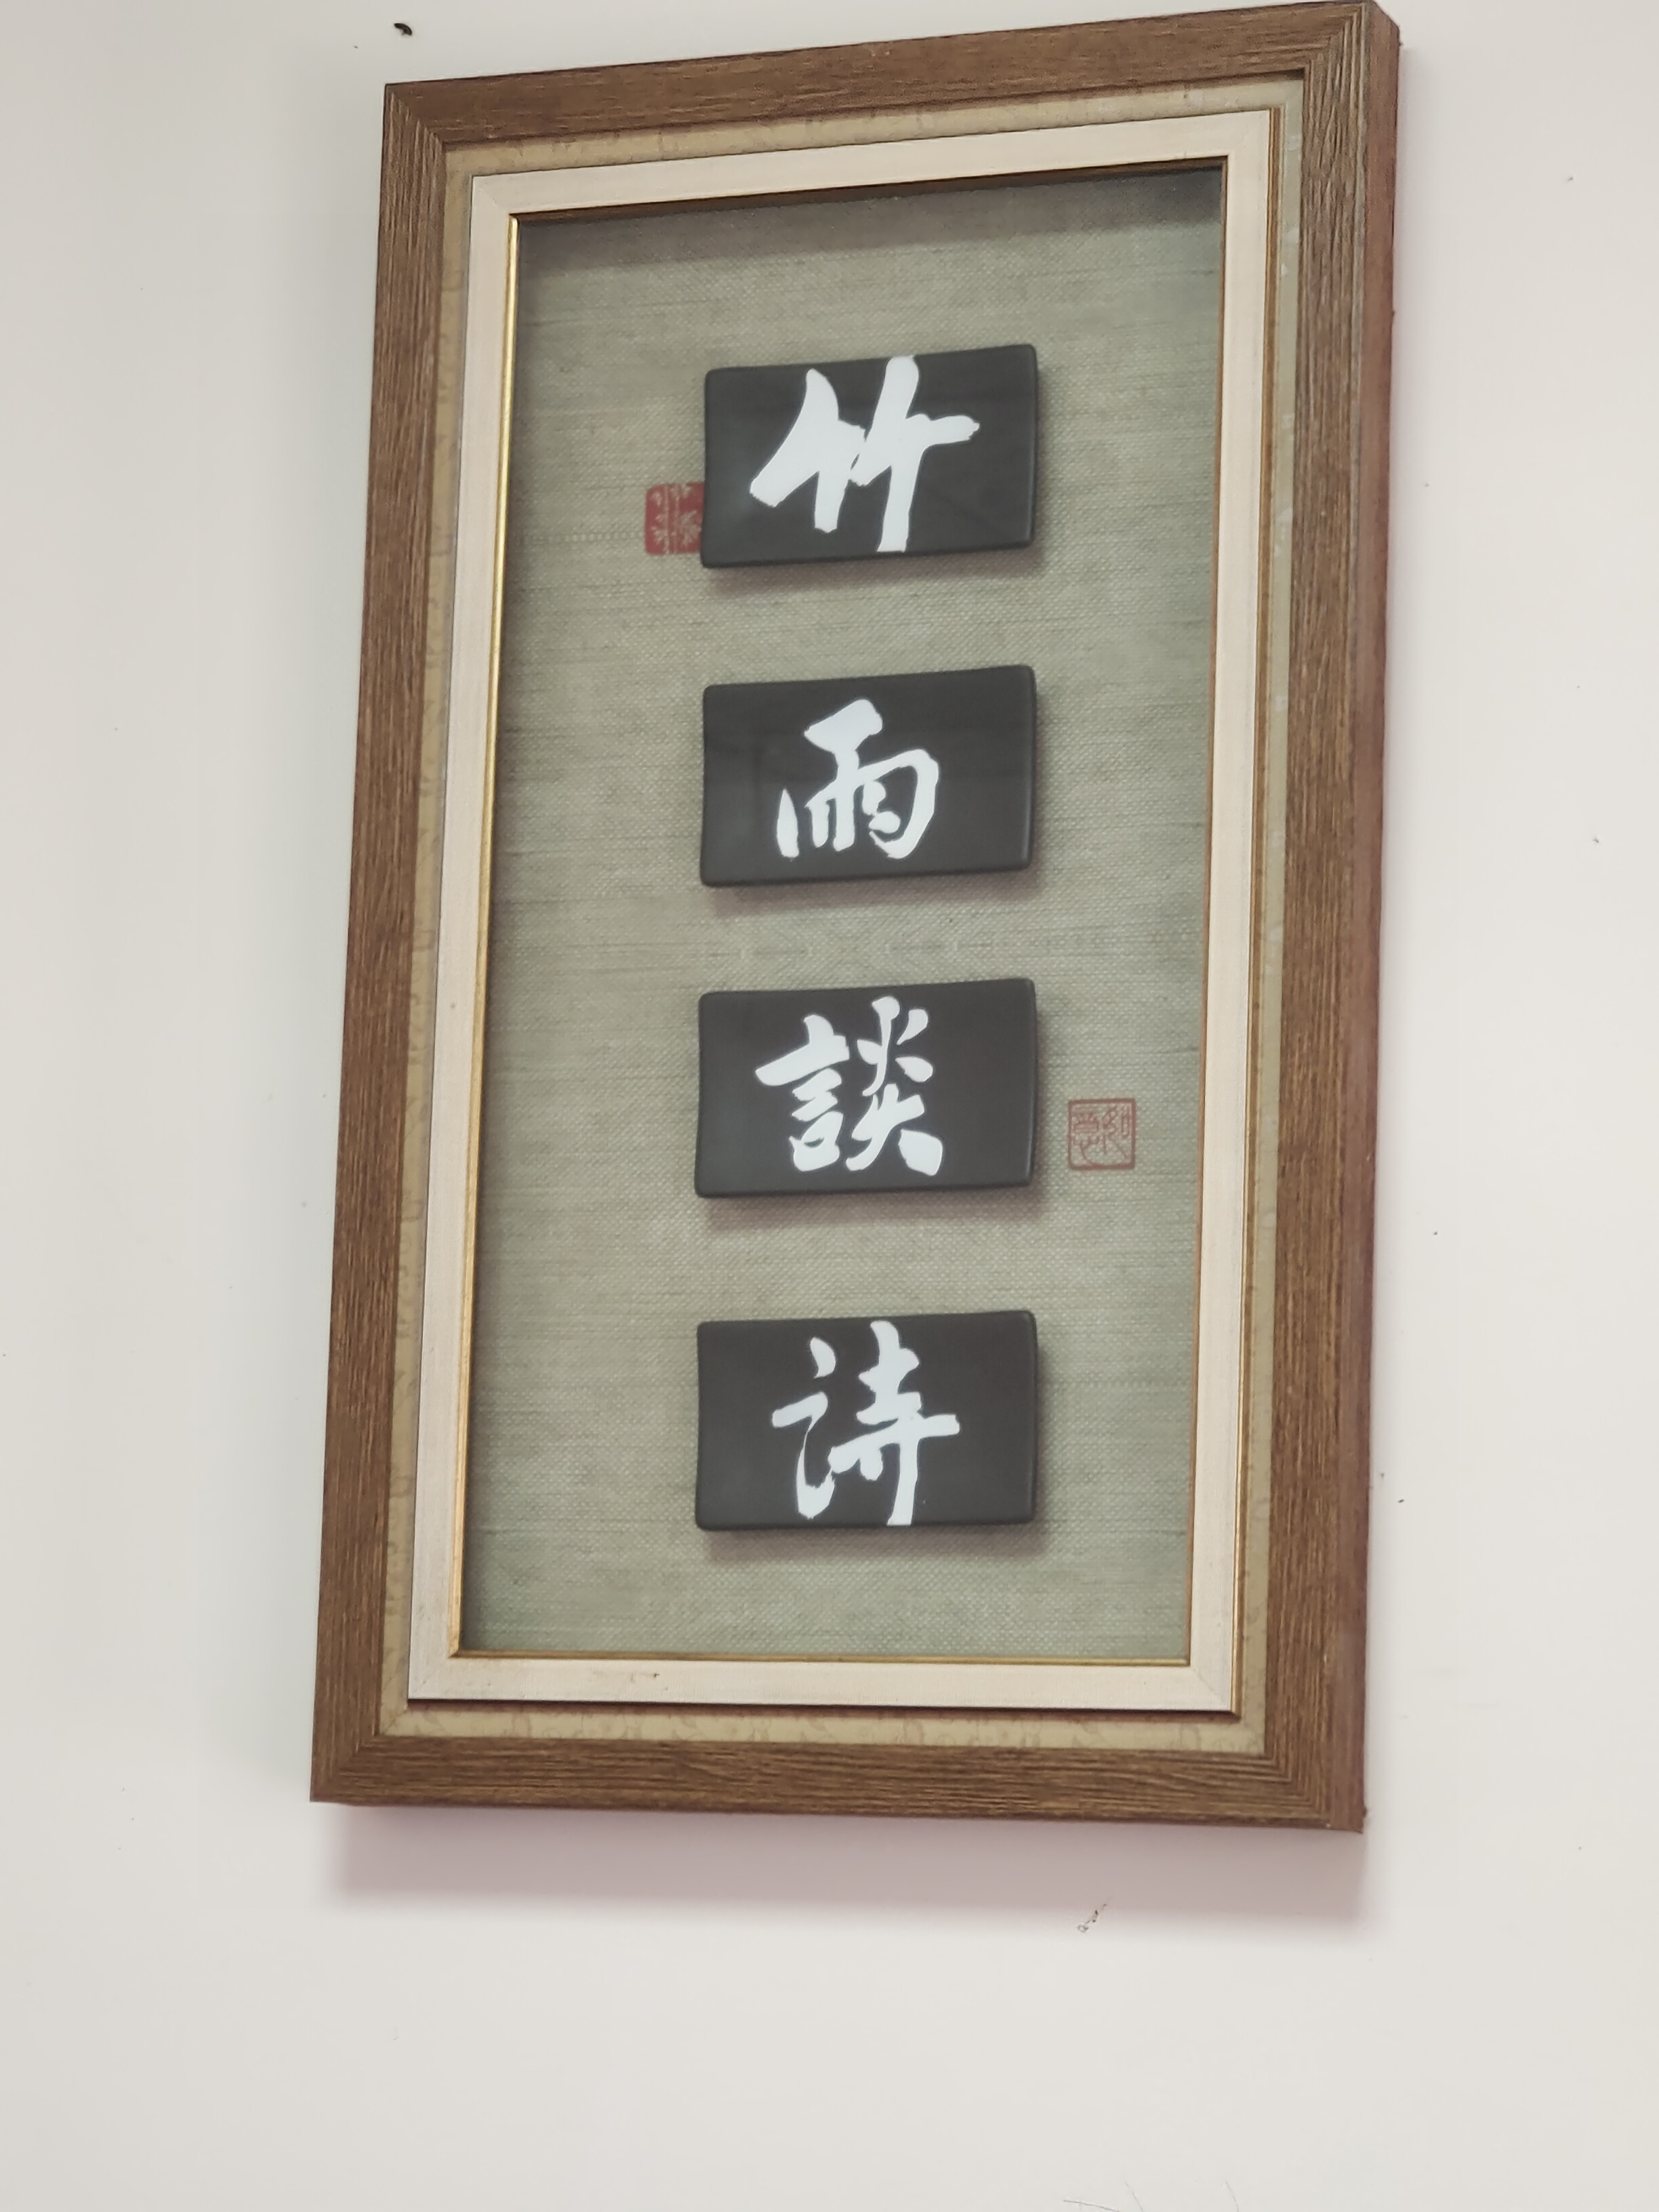 竹
雨
談
詩